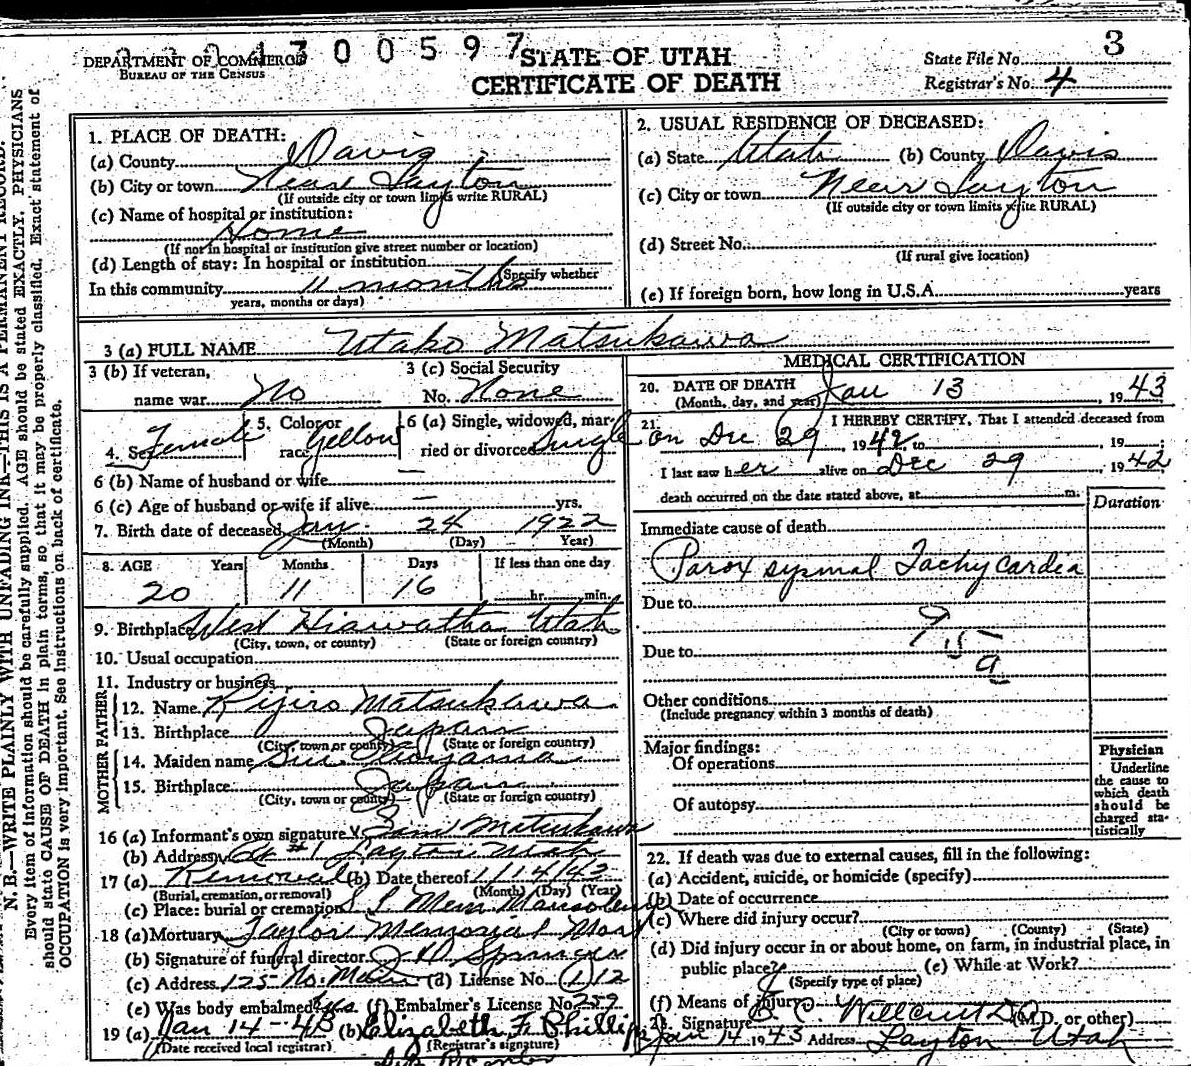 3
DEPARTMENT OF COMMERCE
BUREAU OF THE CENSUS
4300597
STATE OF UTAH
CERTIFICATE OF DEATH
State File No.
Registrar's No. 4
N. B.—WRITE PLAINLY WITH UNFADING INK—THIS IS A PERMANENT RECORD.
Every item of information should be carefully supplied. AGE should be stated EXACTLY. PHYSICIANS
should state CAUSE OF DEATH in plain terms, so that it may be properly classified. Exact statement of
OCCUPATION is very important. See instructions on back of certificate.
1. PLACE OF DEATH:
(a) County Davis
(b) City or town Near Layton
(If outside city or town limits write RURAL)
(c) Name of hospital or institution:
Home
(If not in hospital or institution give street number or location)
(d) Length of stay: In hospital or institution
(Specify whether
In this community 11 months
years, months or days)
2. USUAL RESIDENCE OF DECEASED:
(a) State Utah (b) County Davis
(c) City or town Near Layton
(If outside city or town limits write RURAL)
(d) Street No.
(If rural give location)
(e) If foreign born, how long in U.S.A. years
3 (a) FULL NAME Utako Matsukawa
3 (b) If veteran,
name war No
3 (c) Social Security
No. None
4. Sex Female
5. Color or
race Yellow
6 (a) Single, widowed, mar-
ried or divorced Single
6 (b) Name of husband or wife —
6 (c) Age of husband or wife if alive — yrs.
7. Birth date of deceased Jan. 24 1922
(Month) (Day) Year)
8. AGE Years Months Days If less than one day
20 11 16 hr. min.
9. Birthplace West Hiawatha Utah
(City, town, or county) (State or foreign country)
10. Usual occupation
11. Industry or business
FATHER
12. Name Kijiro Matsukawa
13. Birthplace Japan
(City, town or county) (State or foreign country)
MOTHER
14. Maiden name Aoyama
15. Birthplace Japan
(City, town or county) (State or foreign country)
16 (a) Informant's own signature Sam Matsukawa
(b) Address Rt #1 Layton Utah
17 (a) Removal (b) Date thereof 1/14/43
(Burial, cremation, or removal) (Month) (Day) (Year)
(c) Place: burial or cremation S L Mem Mausoleum
18 (a) Mortuary Taylor Memorial Mort
(b) Signature of funeral director
(c) Address 125 No. Main (d) License No. 112
(e) Was body embalmed? Yes (f) Embalmer's License No. 259
19 (a) Jan 14-43 (b) Elizabeth F. Phillips
(Date received local registrar) (Registrar's signature)
MEDICAL CERTIFICATION
20. DATE OF DEATH Jan 13, 1943
(Month, day, and year)
21. I HEREBY CERTIFY, That I attended deceased from
on Dec 29, 1942, to , 19 ;
I last saw her alive on Dec 29, 1942
death occurred on the date stated above, at m.
Duration
Immediate cause of death
Paroxsysmal Tachycardia
Due to
95
a
Due to
Other conditions
(Include pregnancy within 3 months of death)
Major findings:
Of operations
Of autopsy
Physician
Underline
the cause to
which death
should be
charged sta-
tistically
22. If death was due to external causes, fill in the following:
(a) Accident, suicide, or homicide (specify)
(b) Date of occurrence
(c) Where did injury occur?
(City or town) (County) (State)
(d) Did injury occur in or about home, on farm, in industrial place, in
public place? (e) While at Work?
(Specify type of place)
(f) Means of injury
23. Signature (M.D. or other)
Jan 14 1943 Address Layton Utah